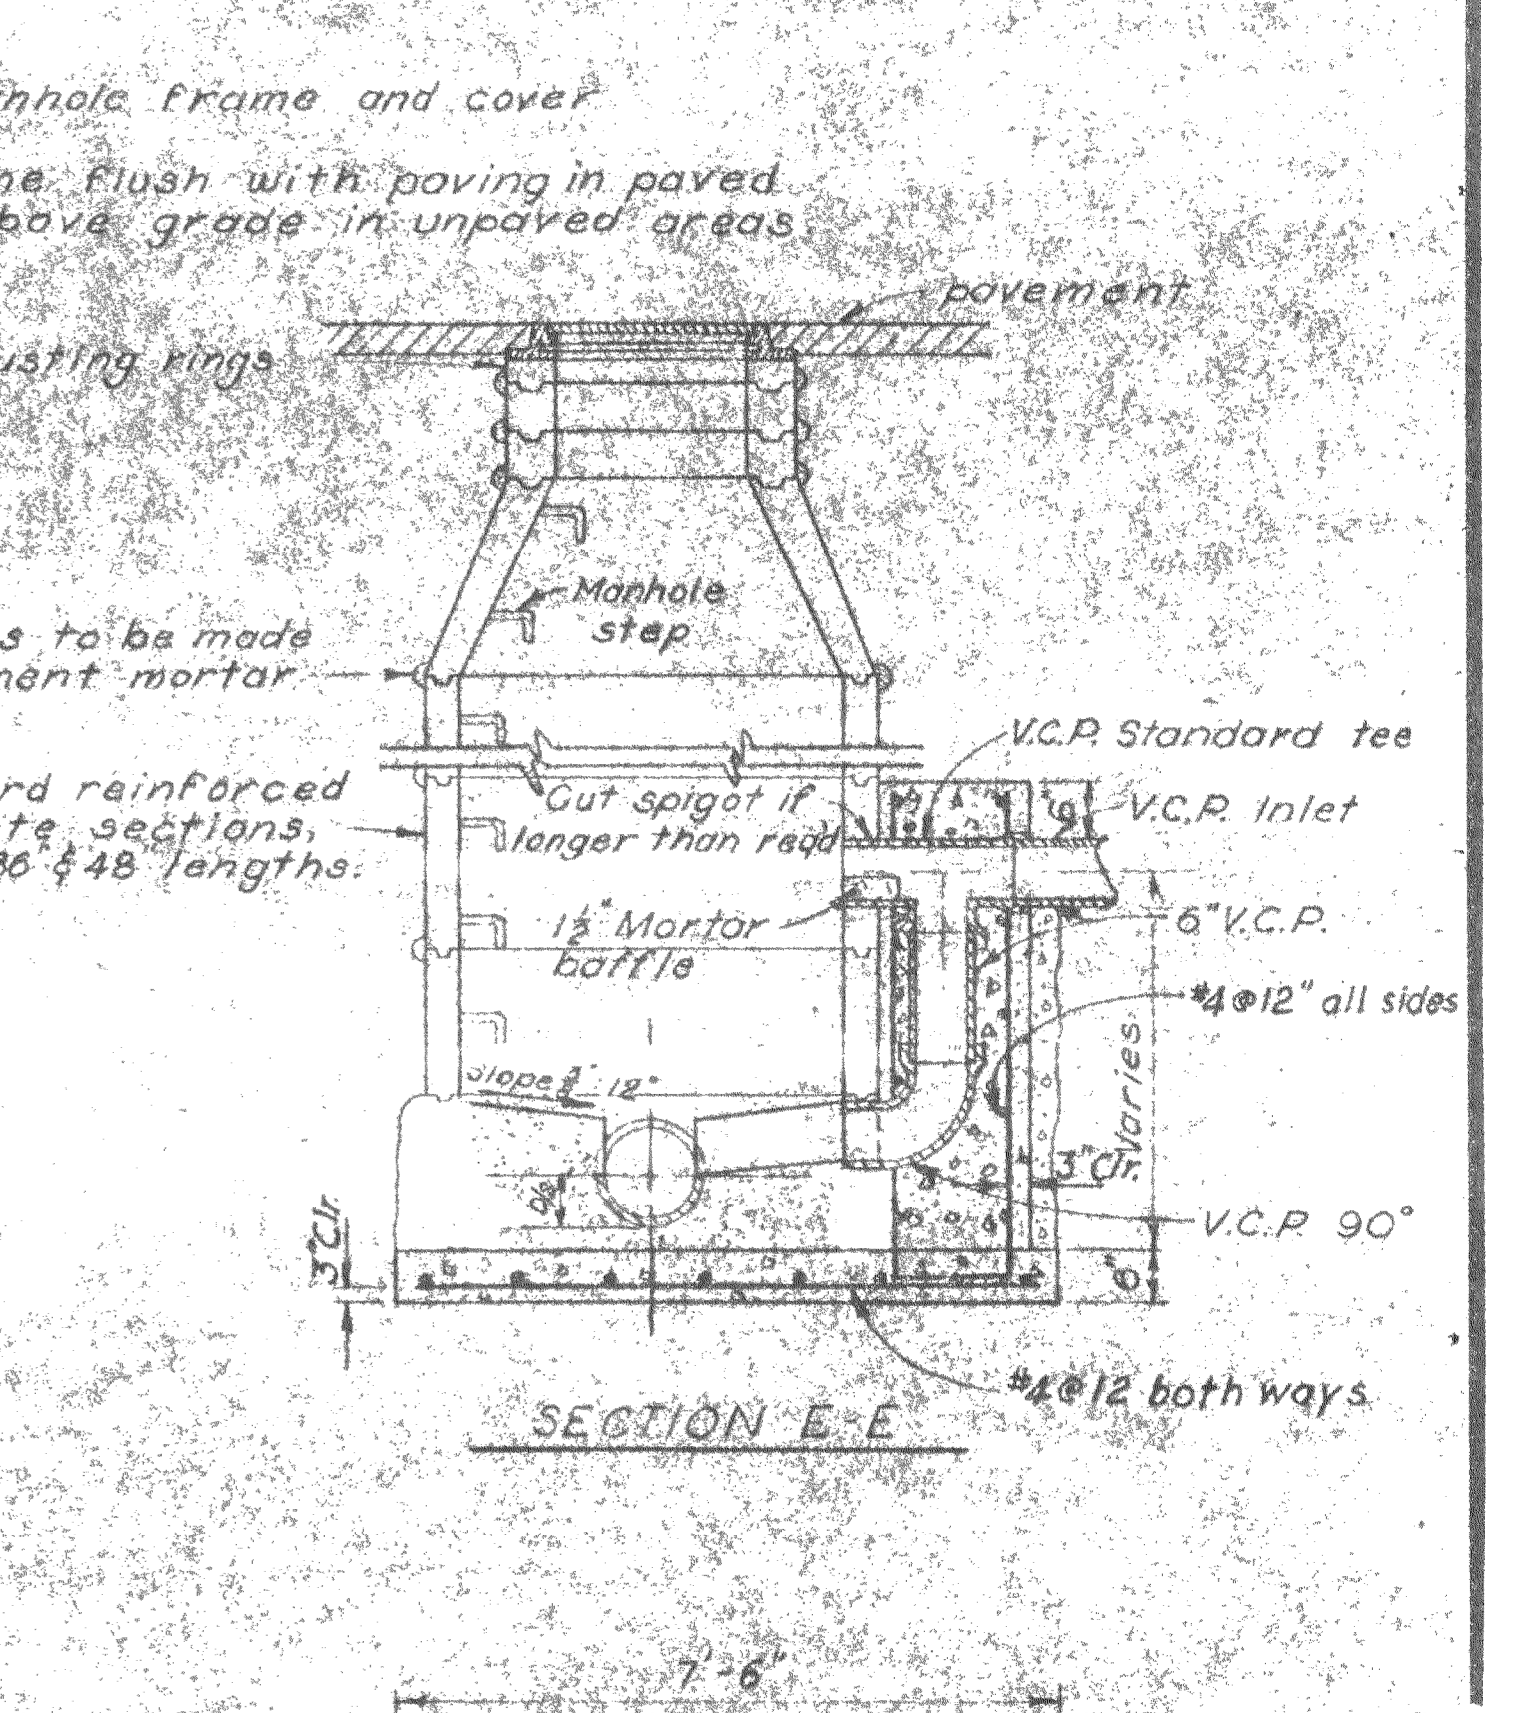 nhole frame and cover
ne flush with paving in paved
bove grade in unpaved areas.
pavement
usting rings
Manhole
step
s to be made
ment mortar
V.C.P. Standard tee
rd reinforced
te sections,
36" & 48" lengths.
Cut spigot if
longer than reqd
6"
V.C.P. Inlet
1½" Mortar
baffle
6" V.C.P.
#4@12" all sides
Slope 12"
Varies
3" Clr.
D/2
V.C.P. 90°
3" Clr.
6"
#4@12 both ways
SECTION E-E
7'-6"